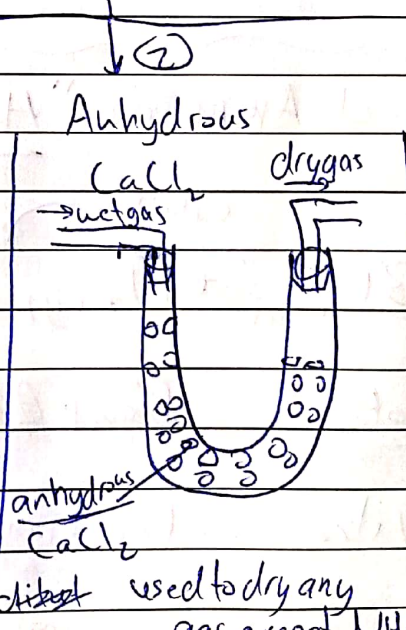 2
Anhydrous
CaCl2
drygas
→wetgas
anhydrous
CaCl2
used to dry any